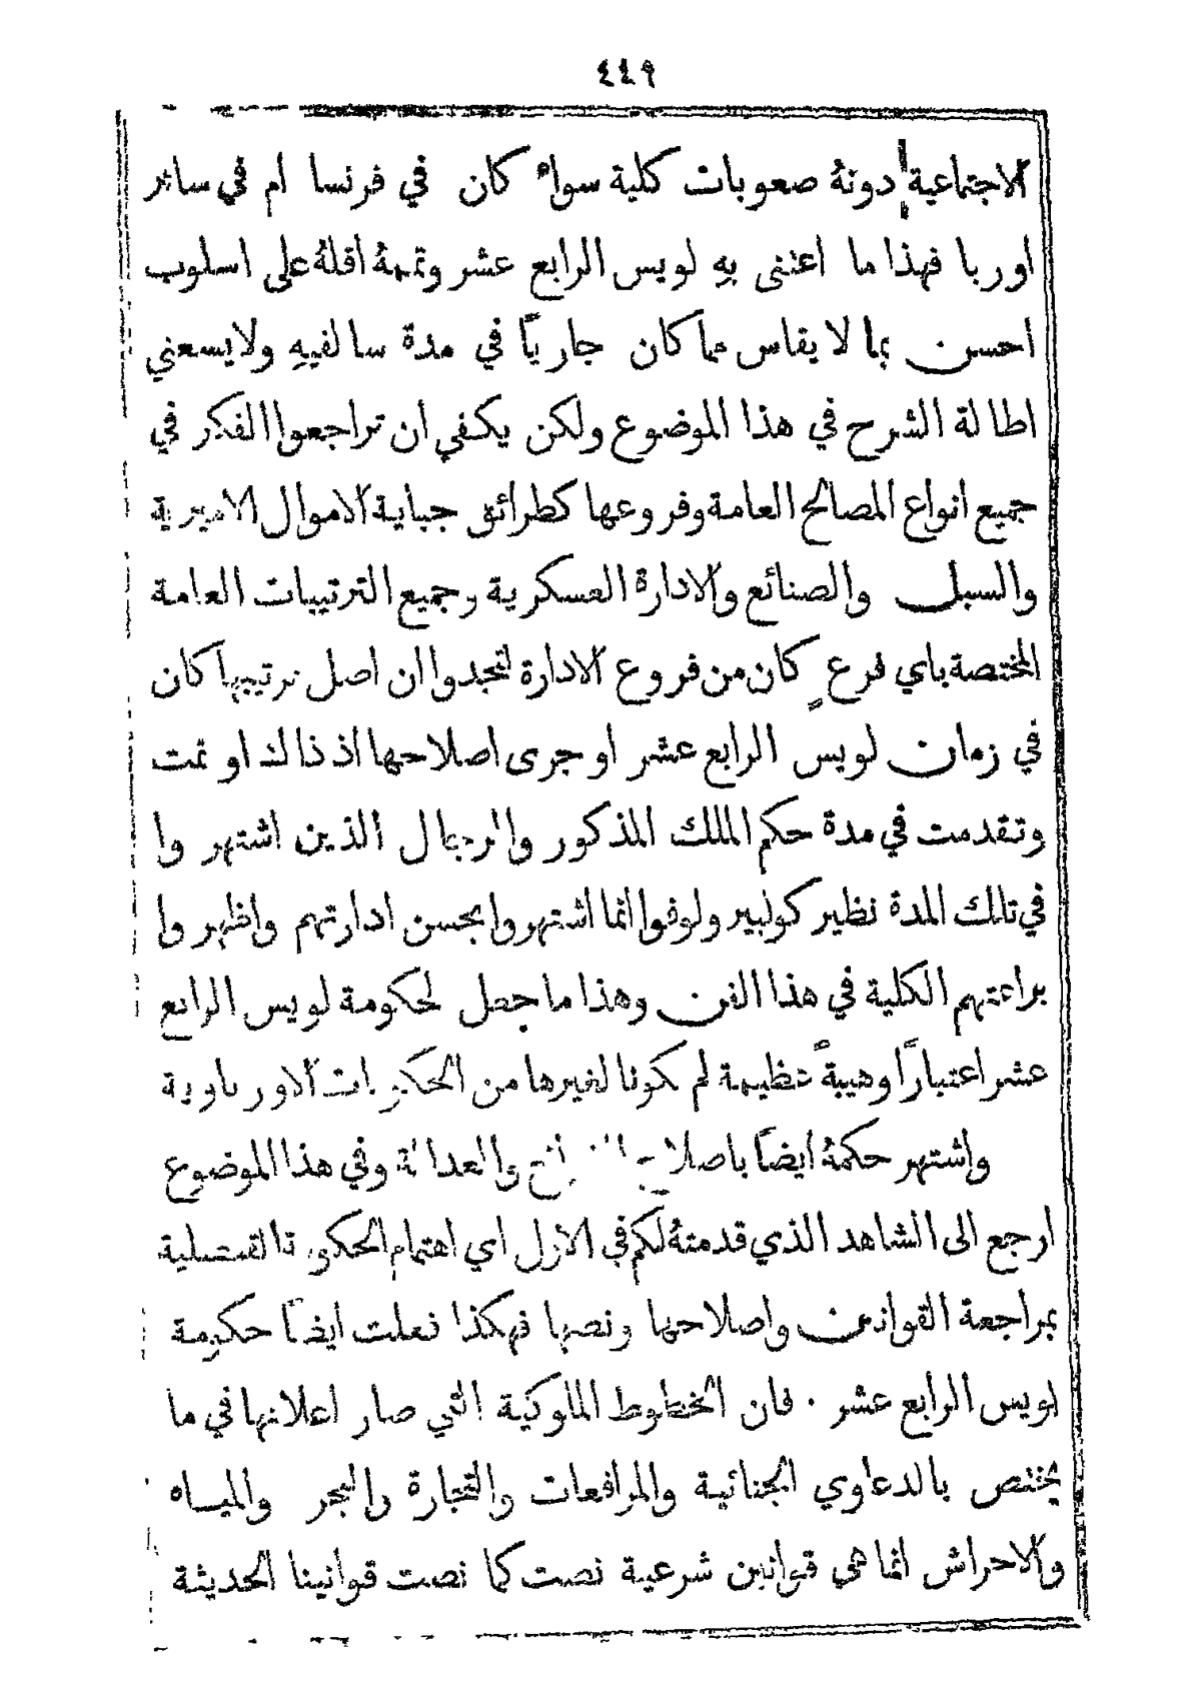 ٤٤٩
الاجتماعية دونهُ صعوبات كلية سواء كان في فرنسا ام في سائر
اوربا فهذا ما اعتنى بهِ لويس الرابع عشر وتممهُ اقلهُ على اسلوب
احسن بما لا يقاس مما كان جاريًا في مدة سالفيهِ ولا يسعني
اطالة الشرح في هذا الموضوع ولكن يكفي ان تراجعوا الفكر في
جميع انواع المصالح العامة وفروعها كطرائق جباية الاموال الاميرية
والسبل والصنائع والادارة العسكرية وجميع الترتيبات العامة
المختصة باي فرع كان من فروع الادارة لتجدوا ان اصل ترتيبها كان
في زمان لويس الرابع عشر او جرى اصلاحها اذ ذاك او تمت
وتقدمت في مدة حكم الملك المذكور والرجال الذين اشتهروا
في تلك المدة نظير كولبير ولوفوا انما اشتهروا بحسن ادارتهم واظهروا
براعتهم الكلية في هذا الفن وهذا ما جعل لحكومة لويس الرابع
عشر اعتبارًا وهيبةً عظيمة لم تكونا لغيرها من الحكومات الاورباوية
واشتهر حكمهُ ايضًا باصلاح والعدالة وفي هذا الموضوع
ارجع الى الشاهد الذي قدمتهُ لكم في الاول اي اهتمام الحكومة القنصلية
بمراجعة القوانين واصلاحها ونصها فهكذا فعلت ايضًا حكومة
لويس الرابع عشر . فان الخطوط الملوكية التي صار اعلانها في ما
يختص بالدعاوي الجنائية والمرافعات والتجارة والبحر والمياه
والاحراش انما هي قوانين شرعية نصت كما نصت قوانيننا الحديثة